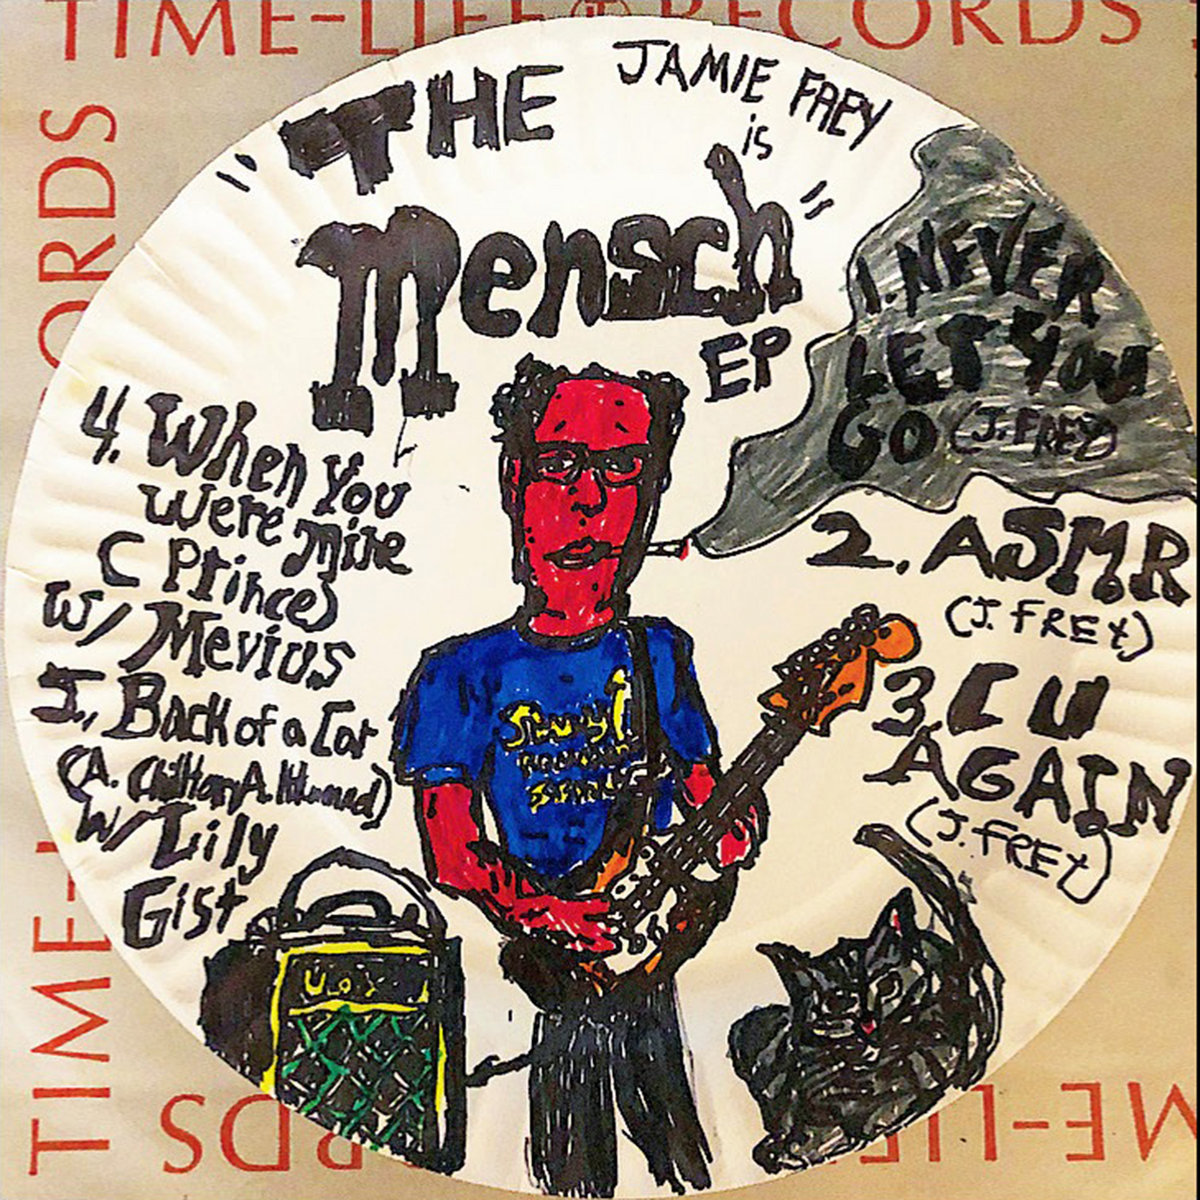 TIME-LIFE RECORDS
JAMIE FREY
is
"THE
Mensch"
EP
1. NEVER
LET YOU
GO (J. FREY)
2. ASMR
(J. FREY)
3. C U
AGAIN
(J. FREY)
4. When You
Were Mine
C Prince)
W/ Mevius
Back of a Car
(A. Chilton A.
W/ Lily
Gist
ORDS
TIME-L
RDS
ME-LIFE